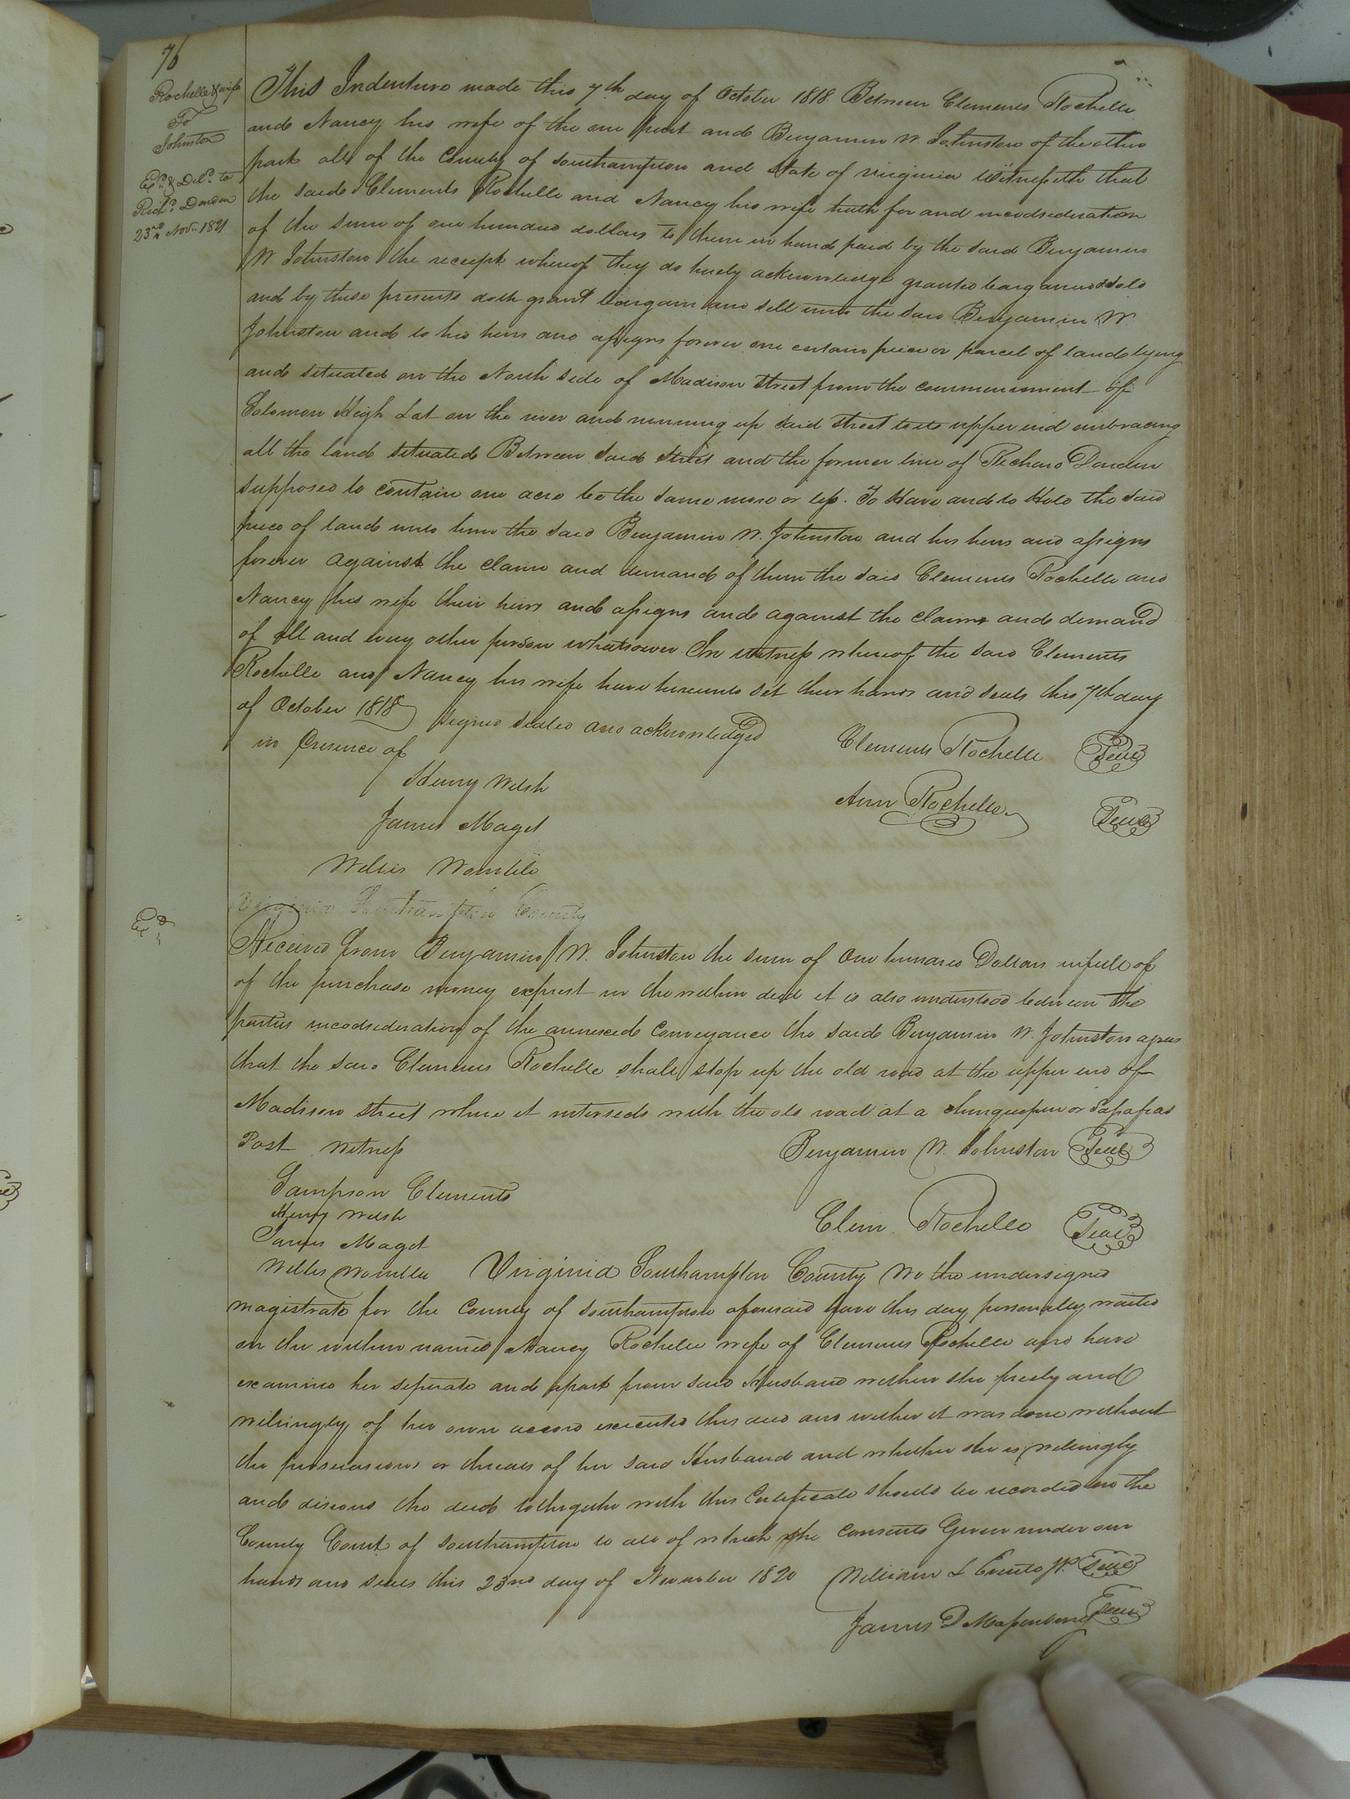 76
Rochelle & wife
To
Johnston
Exd. & Deld. to
Richd. Darden
23rd Novr. 1821
This Indenture made this 7th day of October 1818 Between Clements Rochelle
and Nancy his wife of the one part and Benjamin W Johnston of the other
part all of the County of Southampton and State of Virginia Witnesseth that
the said Clements Rochelle and Nancy his wife hath for and inconsideration
of the sum of one hundred dollars to them in hand paid by the said Benjamin
W Johnston the receipt whereof they do hereby acknowledge granted bargained & sold
and by these presents doth grant bargain and sell unto the said Benjamin W.
Johnston and to his heirs and assigns forever one certain piece or parcel of land lying
and situated on the North side of Madison Street from the commencement of
Solomon High Lot on the river and running up said street to its upper end embracing
all the land situated Between said street and the former line of Richard Darden
supposed to contain one acre be the same more or less. To Have and to Hold the said
piece of land unto him the said Benjamin W. Johnston and his heirs and assigns
forever against the claim and demand of them the said Clements Rochelle and
Nancy his wife their heirs and assigns and against the claims and demand
of all and every other person whatsoever. In witness whereof the said Clements
Rochelle and Nancy his wife have hereunto set their hands and seals this 7th day
of October 1818 signed sealed and acknowledged
in Presence of
Clements Rochelle Seal
Henry Welsh
Ann Rochelle Seal
James Maget
Willis Womble
Virginia Southampton County
Exd.
Received from Benjamin W. Johnston the sum of One hundred Dollars in full of
of the purchase money exprest in the within deed it is also understood between the
parties inconsideration of the annexed conveyance the said Benjamin W. Johnston agrees
that the said Clements Rochelle shall stop up the old road at the upper end of
Madison street where it interseds with the old road at a chinquepen or Sasafras
Post Witness
Benjamin W. Johnston Seal
Sampson Clements
Henry Welsh
Clem. Rochelle Seal
James Maget
Willis Womble Virginia Southampton County We the undersigned
magistrate for the County of Southampton aforesaid have this day personally waited
on the within named Nancy Rochelle wife of Clements Rochelle and have
examined her seperate and apart from said Husband wether she freely and
willingly of her own accord executed this deed and wether it was done without
the persuasions or threats of her said Husband and whether she is willingly
and desirous the deed tothgether with this Certificate should be recorded in the
County Court of Southampton to all of which she consents Given under our
hands and seals this 23rd day of November 1820 William L Everitt JP. Seal
James D Massenburg Seal